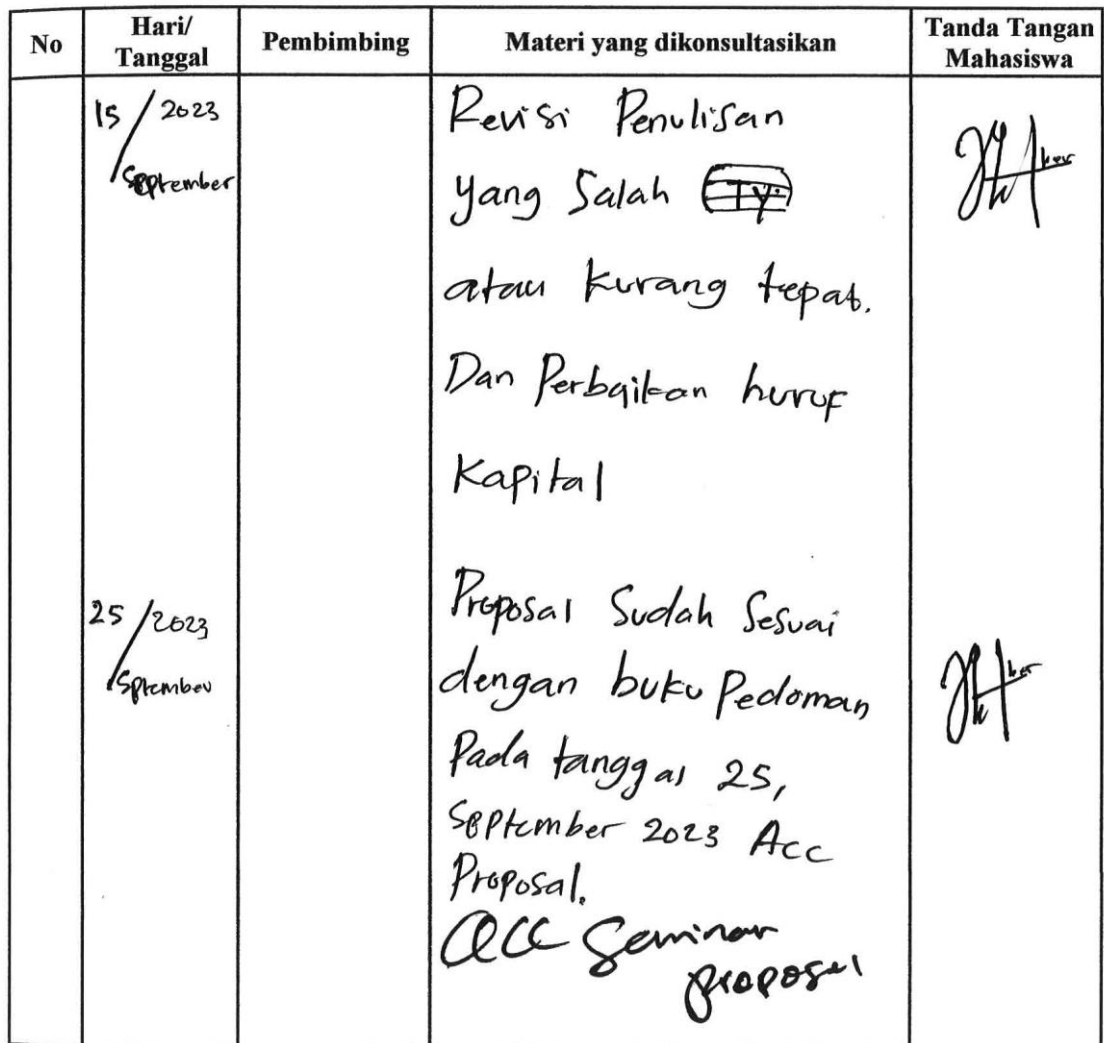 No Hari/ Tanggal Pembimbing Materi yang dikonsultasikan Tanda Tangan Mahasiswa
15 / 2023 September
Revisi Penulisan
yang Salah
atau kurang tepat.
Dan Perbaikan huruf
Kapital
25 / 2023 September
Proposal Sudah Sesuai
dengan buku Pedoman
Pada tanggal 25,
September 2023 Acc
Proposal.
acc Seminar
proposal